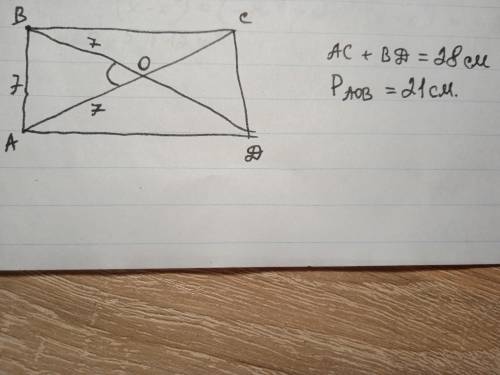 B
C
7
O
7
7
A
Д
AC + BД = 28 см
P AOB = 21 см.